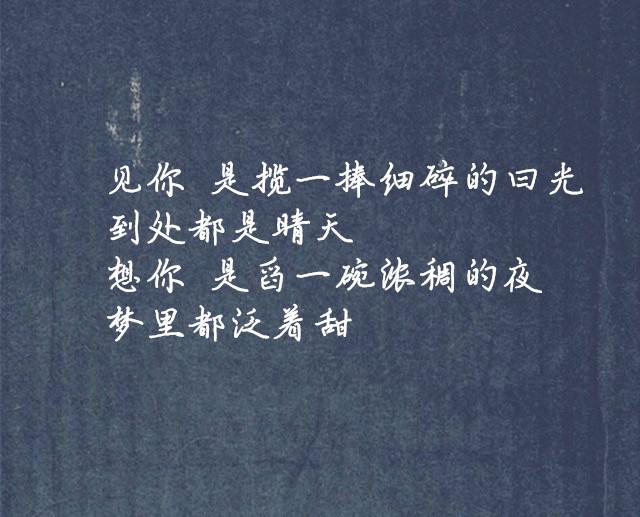 见你 是揽一捧细碎的日光
到处都是晴天
想你 是舀一碗浓稠的夜
梦里都泛着甜